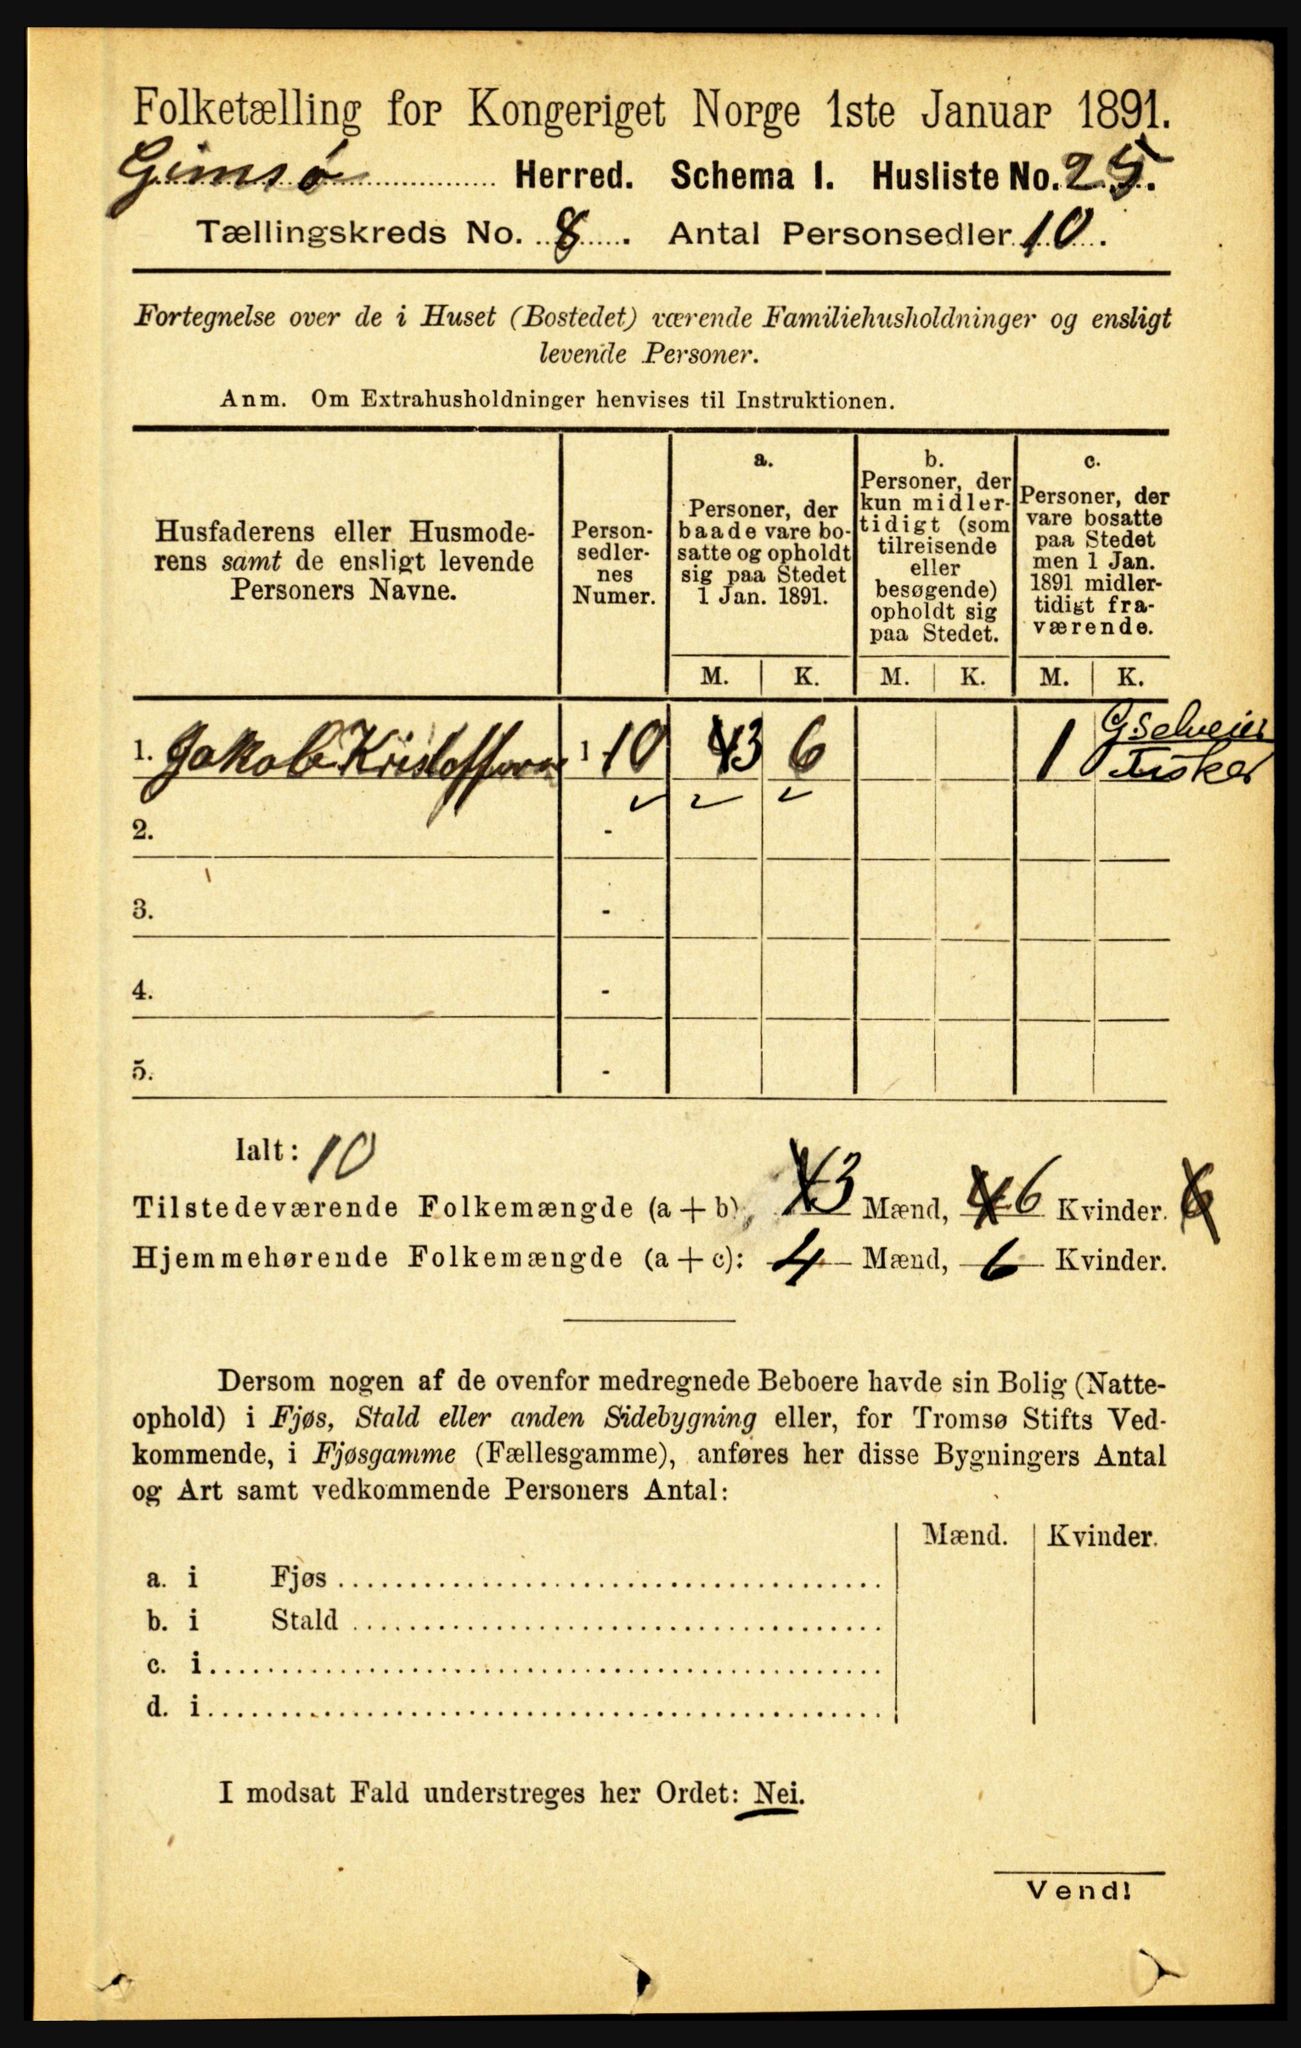 Folketælling for Kongeriget Norge 1ste Januar 1891.
Gimsø Herred. Schema I. Husliste No. 25.
Tællingskreds No. 8. Antal Personsedler 10.
Fortegnelse over de i Huset (Bostedet) værende Familiehusholdninger og ensligt
levende Personer.
Anm. Om Extrahusholdninger henvises til Instruktionen.
Husfaderens eller Husmode-
rens samt de ensligt levende
Personers Navne.
Person-
sedler-
nes
Numer.
a.
Personer, der
baade vare bo-
satte og opholdt
sig paa Stedet
1 Jan. 1891.
b.
Personer, der
kun midler-
tidigt (som
tilreisende
eller
besøgende)
opholdt sig
paa Stedet.
c.
Personer, der
vare bosatte
paa Stedet
men 1 Jan.
1891 midler-
tidigt fra-
værende.
M. K. M. K. M. K.
1. Jakob 1-10 43 6 1 G.selveier
Fisker
2. -
3. -
4. -
5. -
Ialt: 10
Tilstedeværende Folkemængde (a + b), 43 Mænd, 4 6 Kvinder. 6
Hjemmehørende Folkemængde (a + c): 4 Mænd, 6 Kvinder.
Dersom nogen af de ovenfor medregnede Beboere havde sin Bolig (Natte-
ophold) i Fjøs, Stald eller anden Sidebygning eller, for Tromsø Stifts Ved-
kommende, i Fjøsgamme (Fællesgamme), anføres her disse Bygningers Antal
og Art samt vedkommende Personers Antal:
Mænd. Kvinder.
a. i Fjøs
b. i Stald
c. i
d. i
I modsat Fald understreges her Ordet: Nei.
Vend!